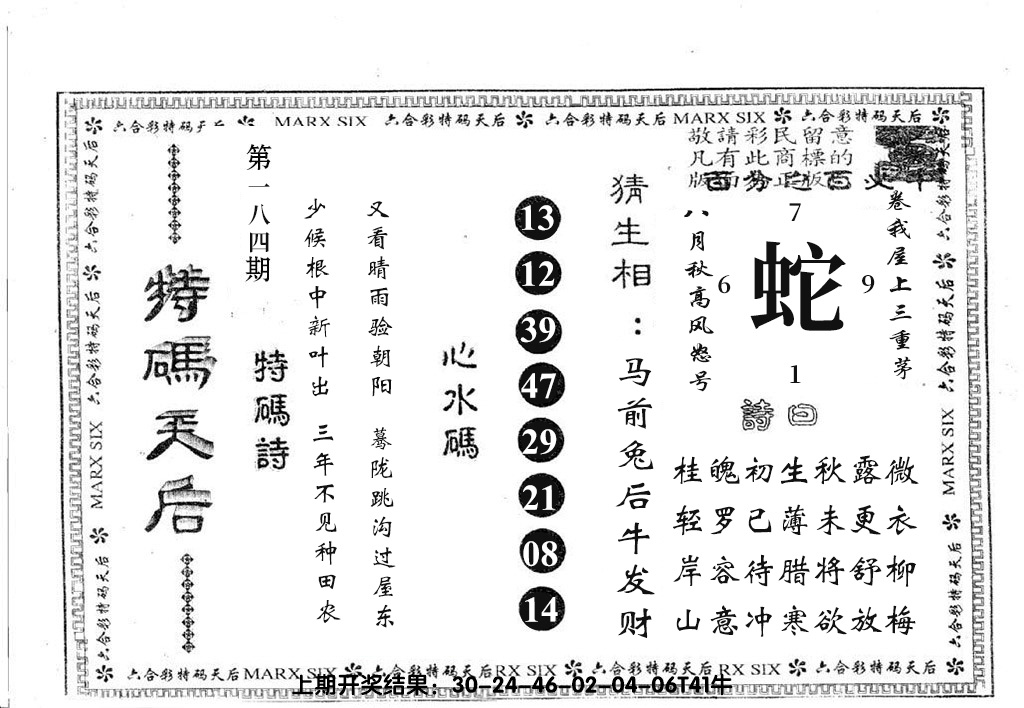 六合彩特码天后 MARX SIX 六合彩特码天后 六合彩特码天后 MARX SIX 六合彩特码天后
敬請彩民留意
凡有此商標的
第一八四期
特碼天后
特碼詩
少候根中新叶出 三年不见种田农
又看晴雨验朝阳 蓦陇跳沟过屋东
心水碼
13
12
39
47
29
21
08
14
猜生相：马前兔后牛发财
八月秋高风怒号
卷我屋上三重茅
7
6 蛇 9
1
詩曰
桂魄初生秋露微
轻罗已薄未更衣
岸容待腊将舒柳
山意冲寒欲放梅
六合彩特码天后 MARX SIX 六合彩特码天后
六合彩特码天后 MARX SIX 六合彩特码天后
六合彩特码天后MARX SIX 六合彩特码天后RX SIX 六合彩特码天后RX SIX 六合彩特码天后
上期开奖结果：30-24-46-02-04-06T41牛